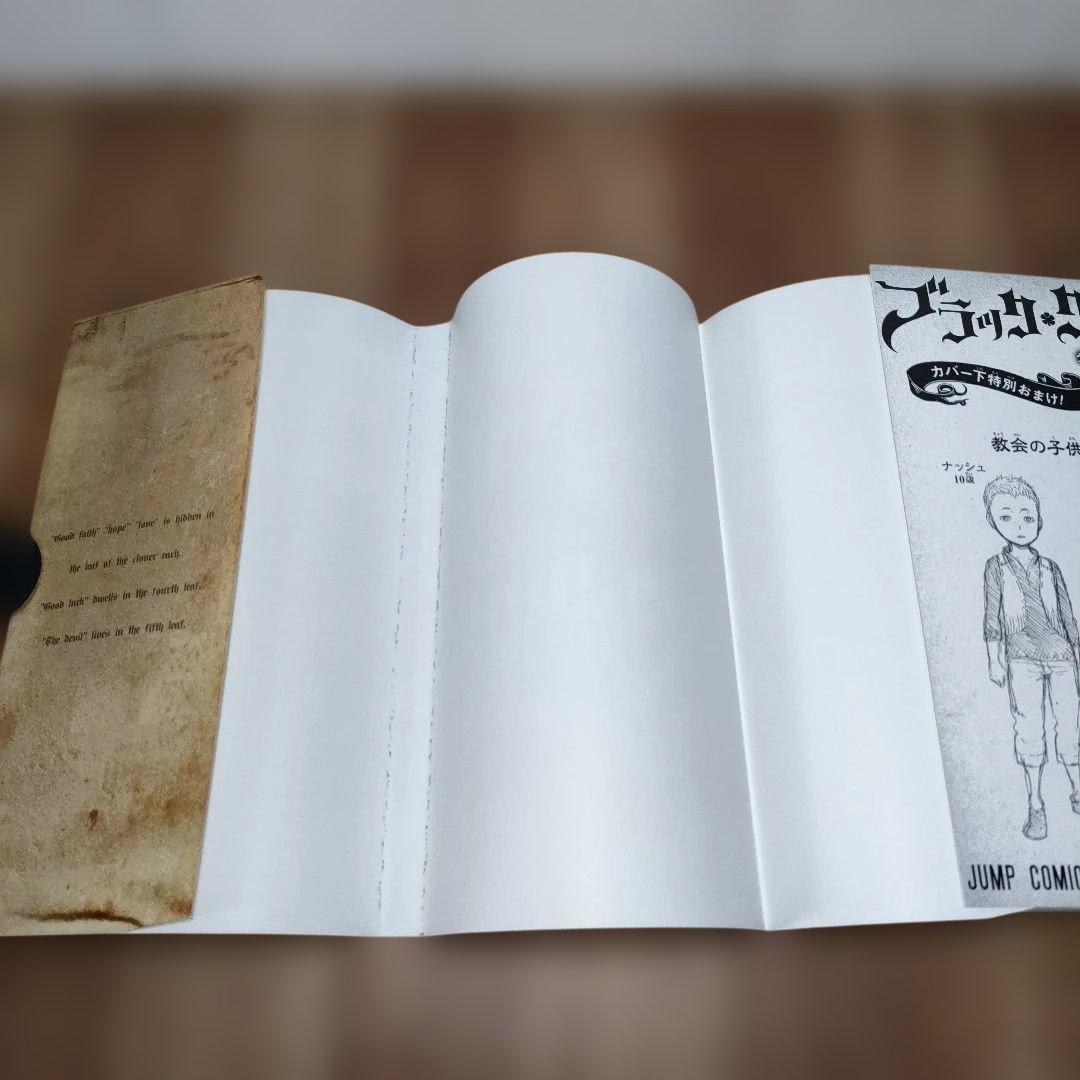 "Good faith" "hope" "love" is hidden in
the leaf of the clover each.
"Good luck" dwells in the fourth leaf.
"The devil" lives in the fifth leaf.
ブラック
カバー下特別おまけ!
教会の子供
ナッシュ
10歳
JUMP COMIC